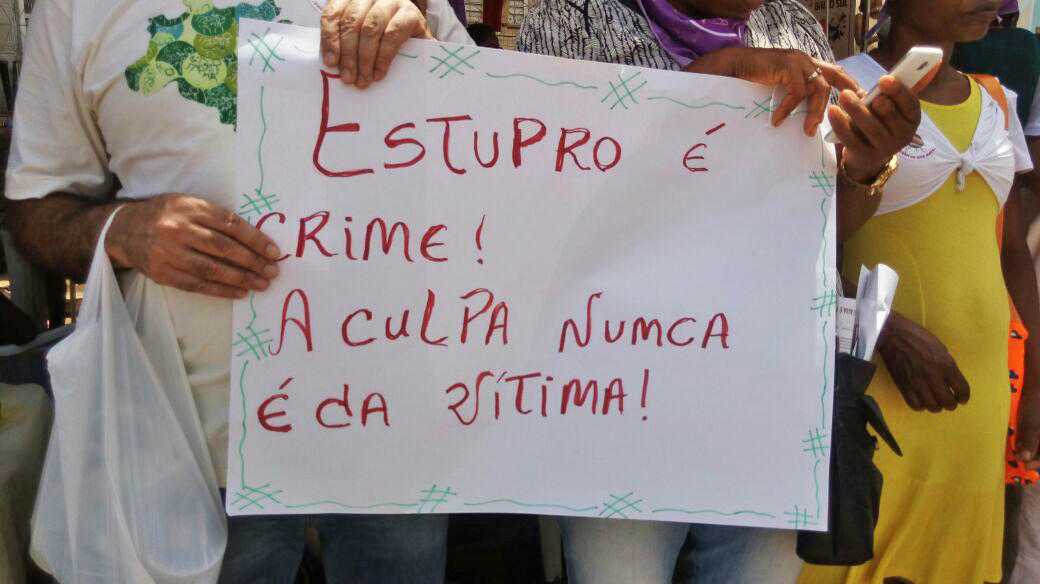 ESTUPRO É
CRIME!
A CULPA NUMCA
É DA VÍTIMA!